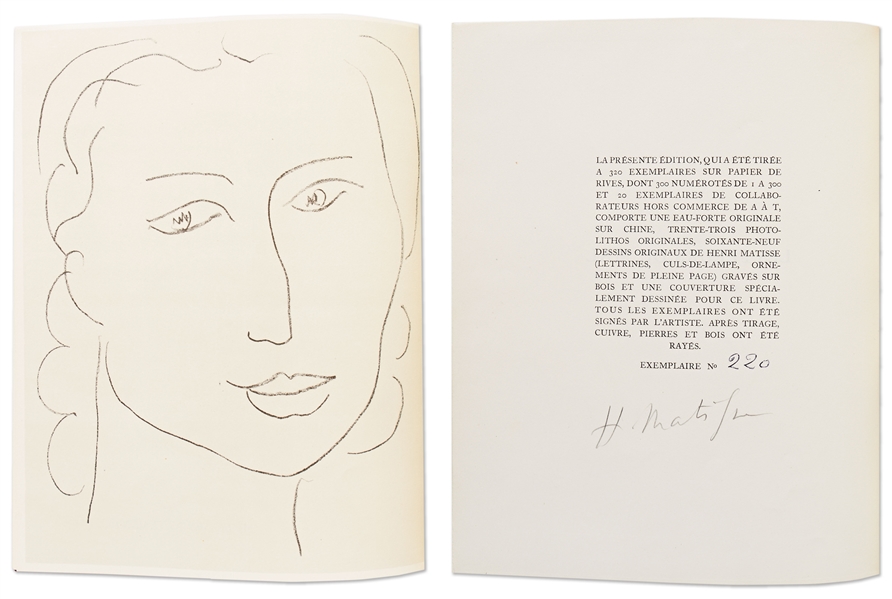 LA PRÉSENTE ÉDITION, QUI A ÉTÉ TIRÉE
A 320 EXEMPLAIRES SUR PAPIER DE
RIVES, DONT 300 NUMÉROTÉS DE 1 A 300
ET 20 EXEMPLAIRES DE COLLABO-
RATEURS HORS COMMERCE DE A À T,
COMPORTE UNE EAU-FORTE ORIGINALE
SUR CHINE, TRENTE-TROIS PHOTO-
LITHOS ORIGINALES, SOIXANTE-NEUF
DESSINS ORIGINAUX DE HENRI MATISSE
(LETTRINES, CULS-DE-LAMPE, ORNE-
MENTS DE PLEINE PAGE) GRAVÉS SUR
BOIS ET UNE COUVERTURE SPÉCIA-
LEMENT DESSINÉE POUR CE LIVRE.
TOUS LES EXEMPLAIRES ONT ÉTÉ
SIGNÉS PAR L'ARTISTE. APRÈS TIRAGE,
CUIVRE, PIERRES ET BOIS ONT ÉTÉ
RAYÉS.
EXEMPLAIRE Nº 220
H. Matisse